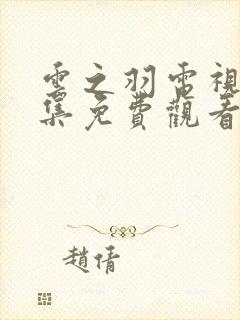 雲之羽電視
集免費觀看
趙倩